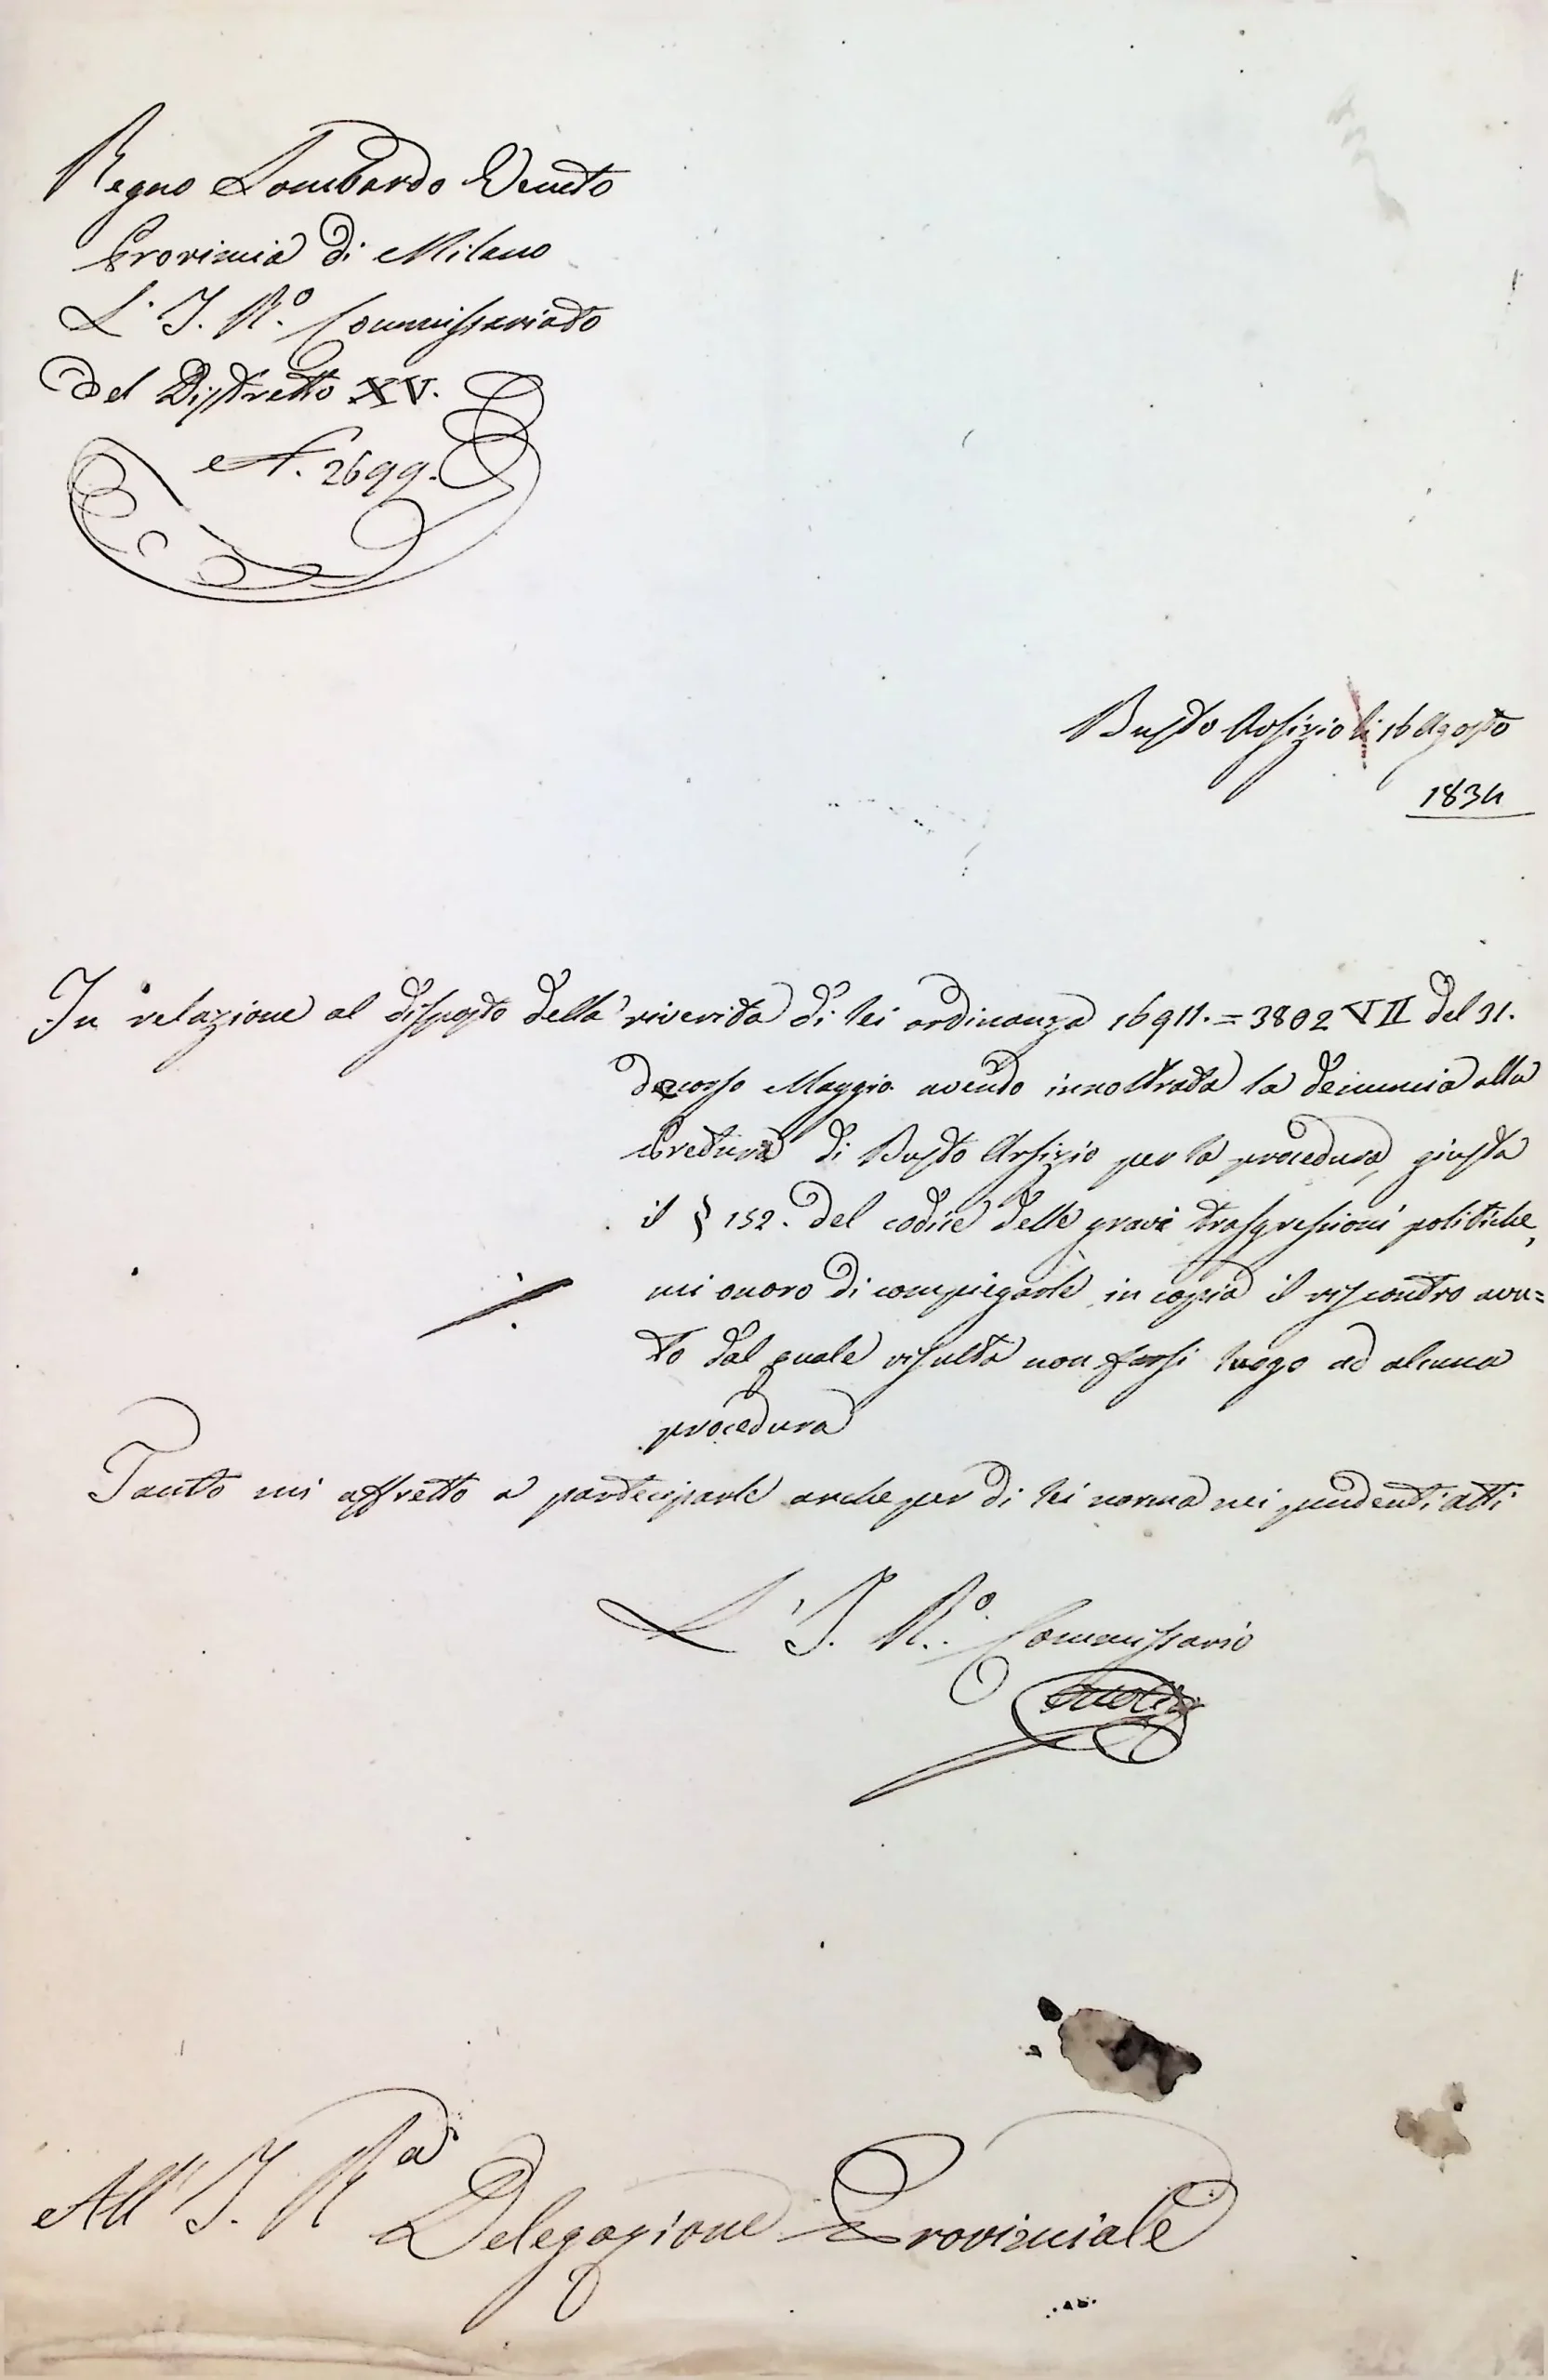 Regno Lombardo Veneto
Provincia di Milano
L'I. R.º Commissariato
del Distretto XV.
N. 2699.
Busto Arsizio li 16 Agosto
1834
In relazione al disposto della riverita di lei ordinanza 16911.=3802 VII del 31.
decorso Maggio avendo innoltrata la denuncia alla
Pretura di Busto Arsizio per la procedura, giusta
il § 152. del codice delle gravi trasgressioni politiche,
mi onoro di compiegarle in copia il riscontro avu=
to dal quale risulta non farsi luogo ad alcuna
procedura
Tanto mi affretto a parteciparle anche per di lei norma nei pendenti atti
L'I. R.º Commissario
All' I. R.ª Delegazione Provinciale